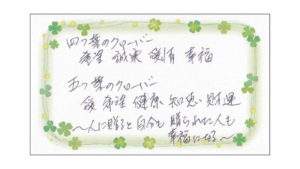 四つ葉のクローバー
希望 誠実 愛情 幸福
五つ葉のクローバー
愛 希望 健康 知恵 財運
〜人に贈ると自分も贈られた人も
幸福になる〜